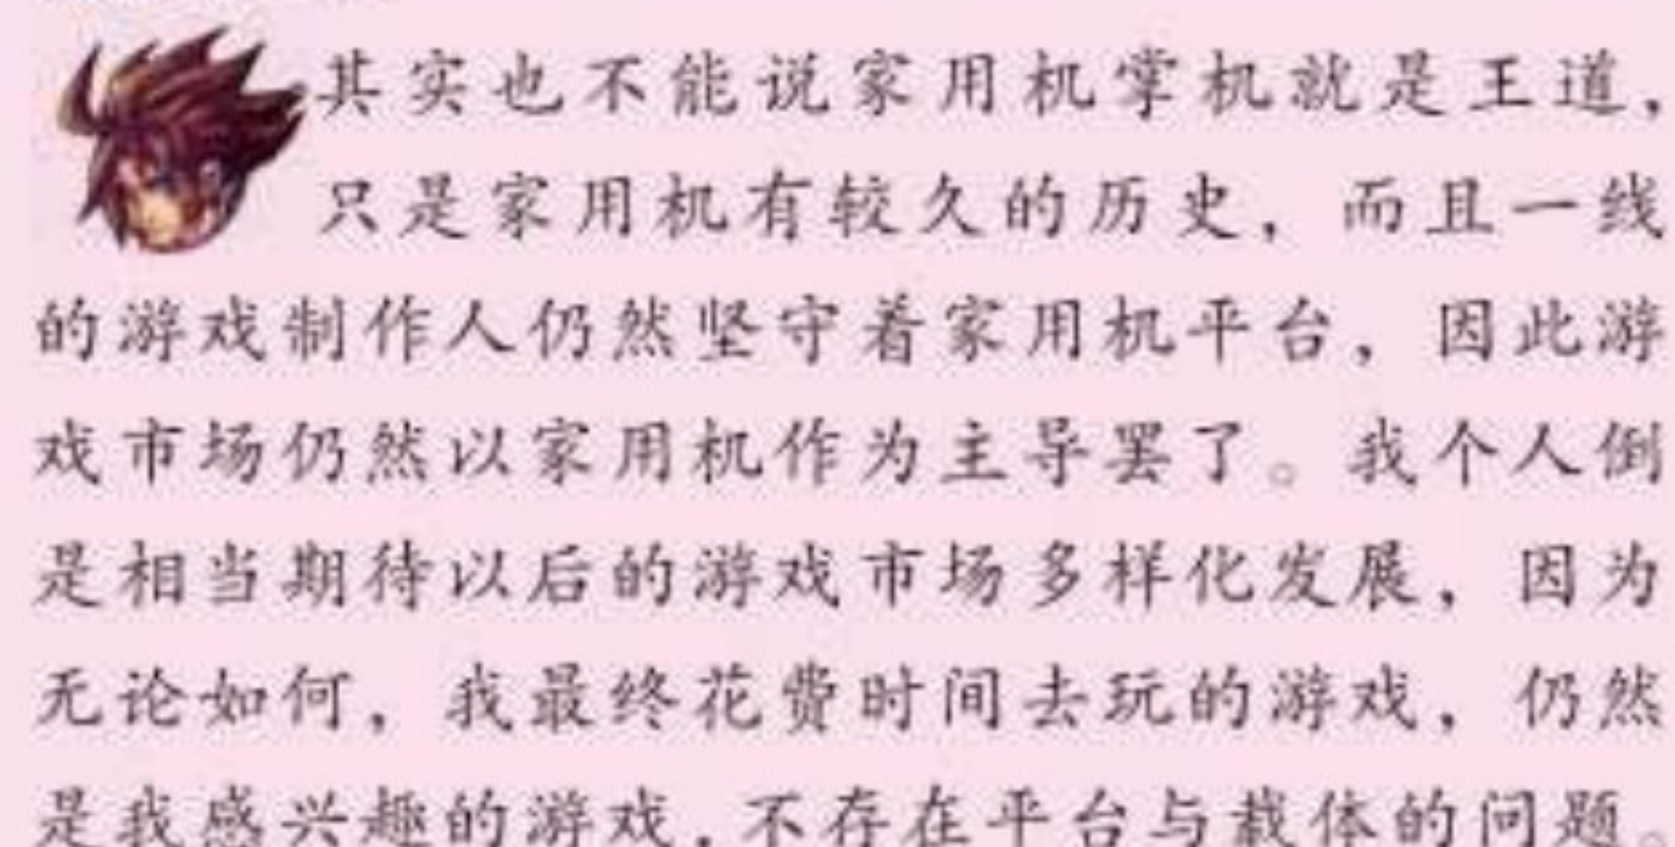 其实也不能说家用机掌机就是王道，
只是家用机有较久的历史，而且一线
的游戏制作人仍然坚守着家用机平台，因此游
戏市场仍然以家用机作为主导罢了。我个人倒
是相当期待以后的游戏市场多样化发展，因为
无论如何，我最终花费时间去玩的游戏，仍然
是我感兴趣的游戏，不存在平台与载体的问题。